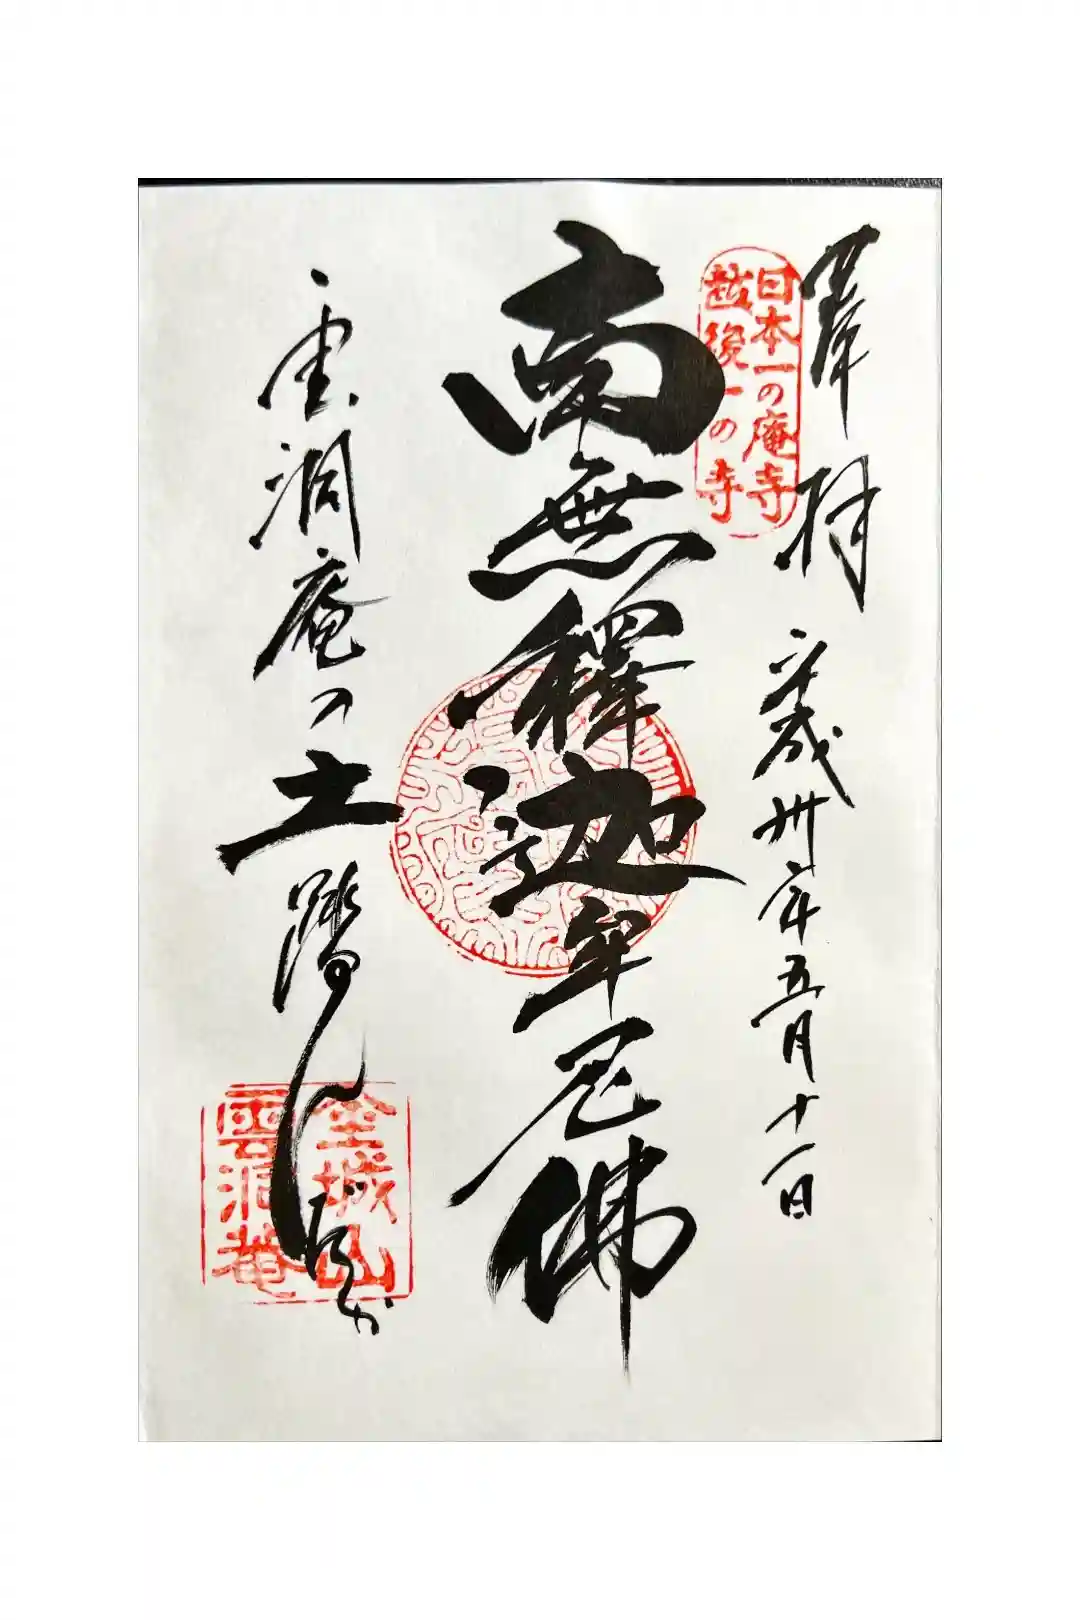 拝
平成卅年五月十一日
日本一の庵寺
越後一の寺
南無釋迦牟尼佛
雲洞庵の土踏んだか
金城山
雲洞庵